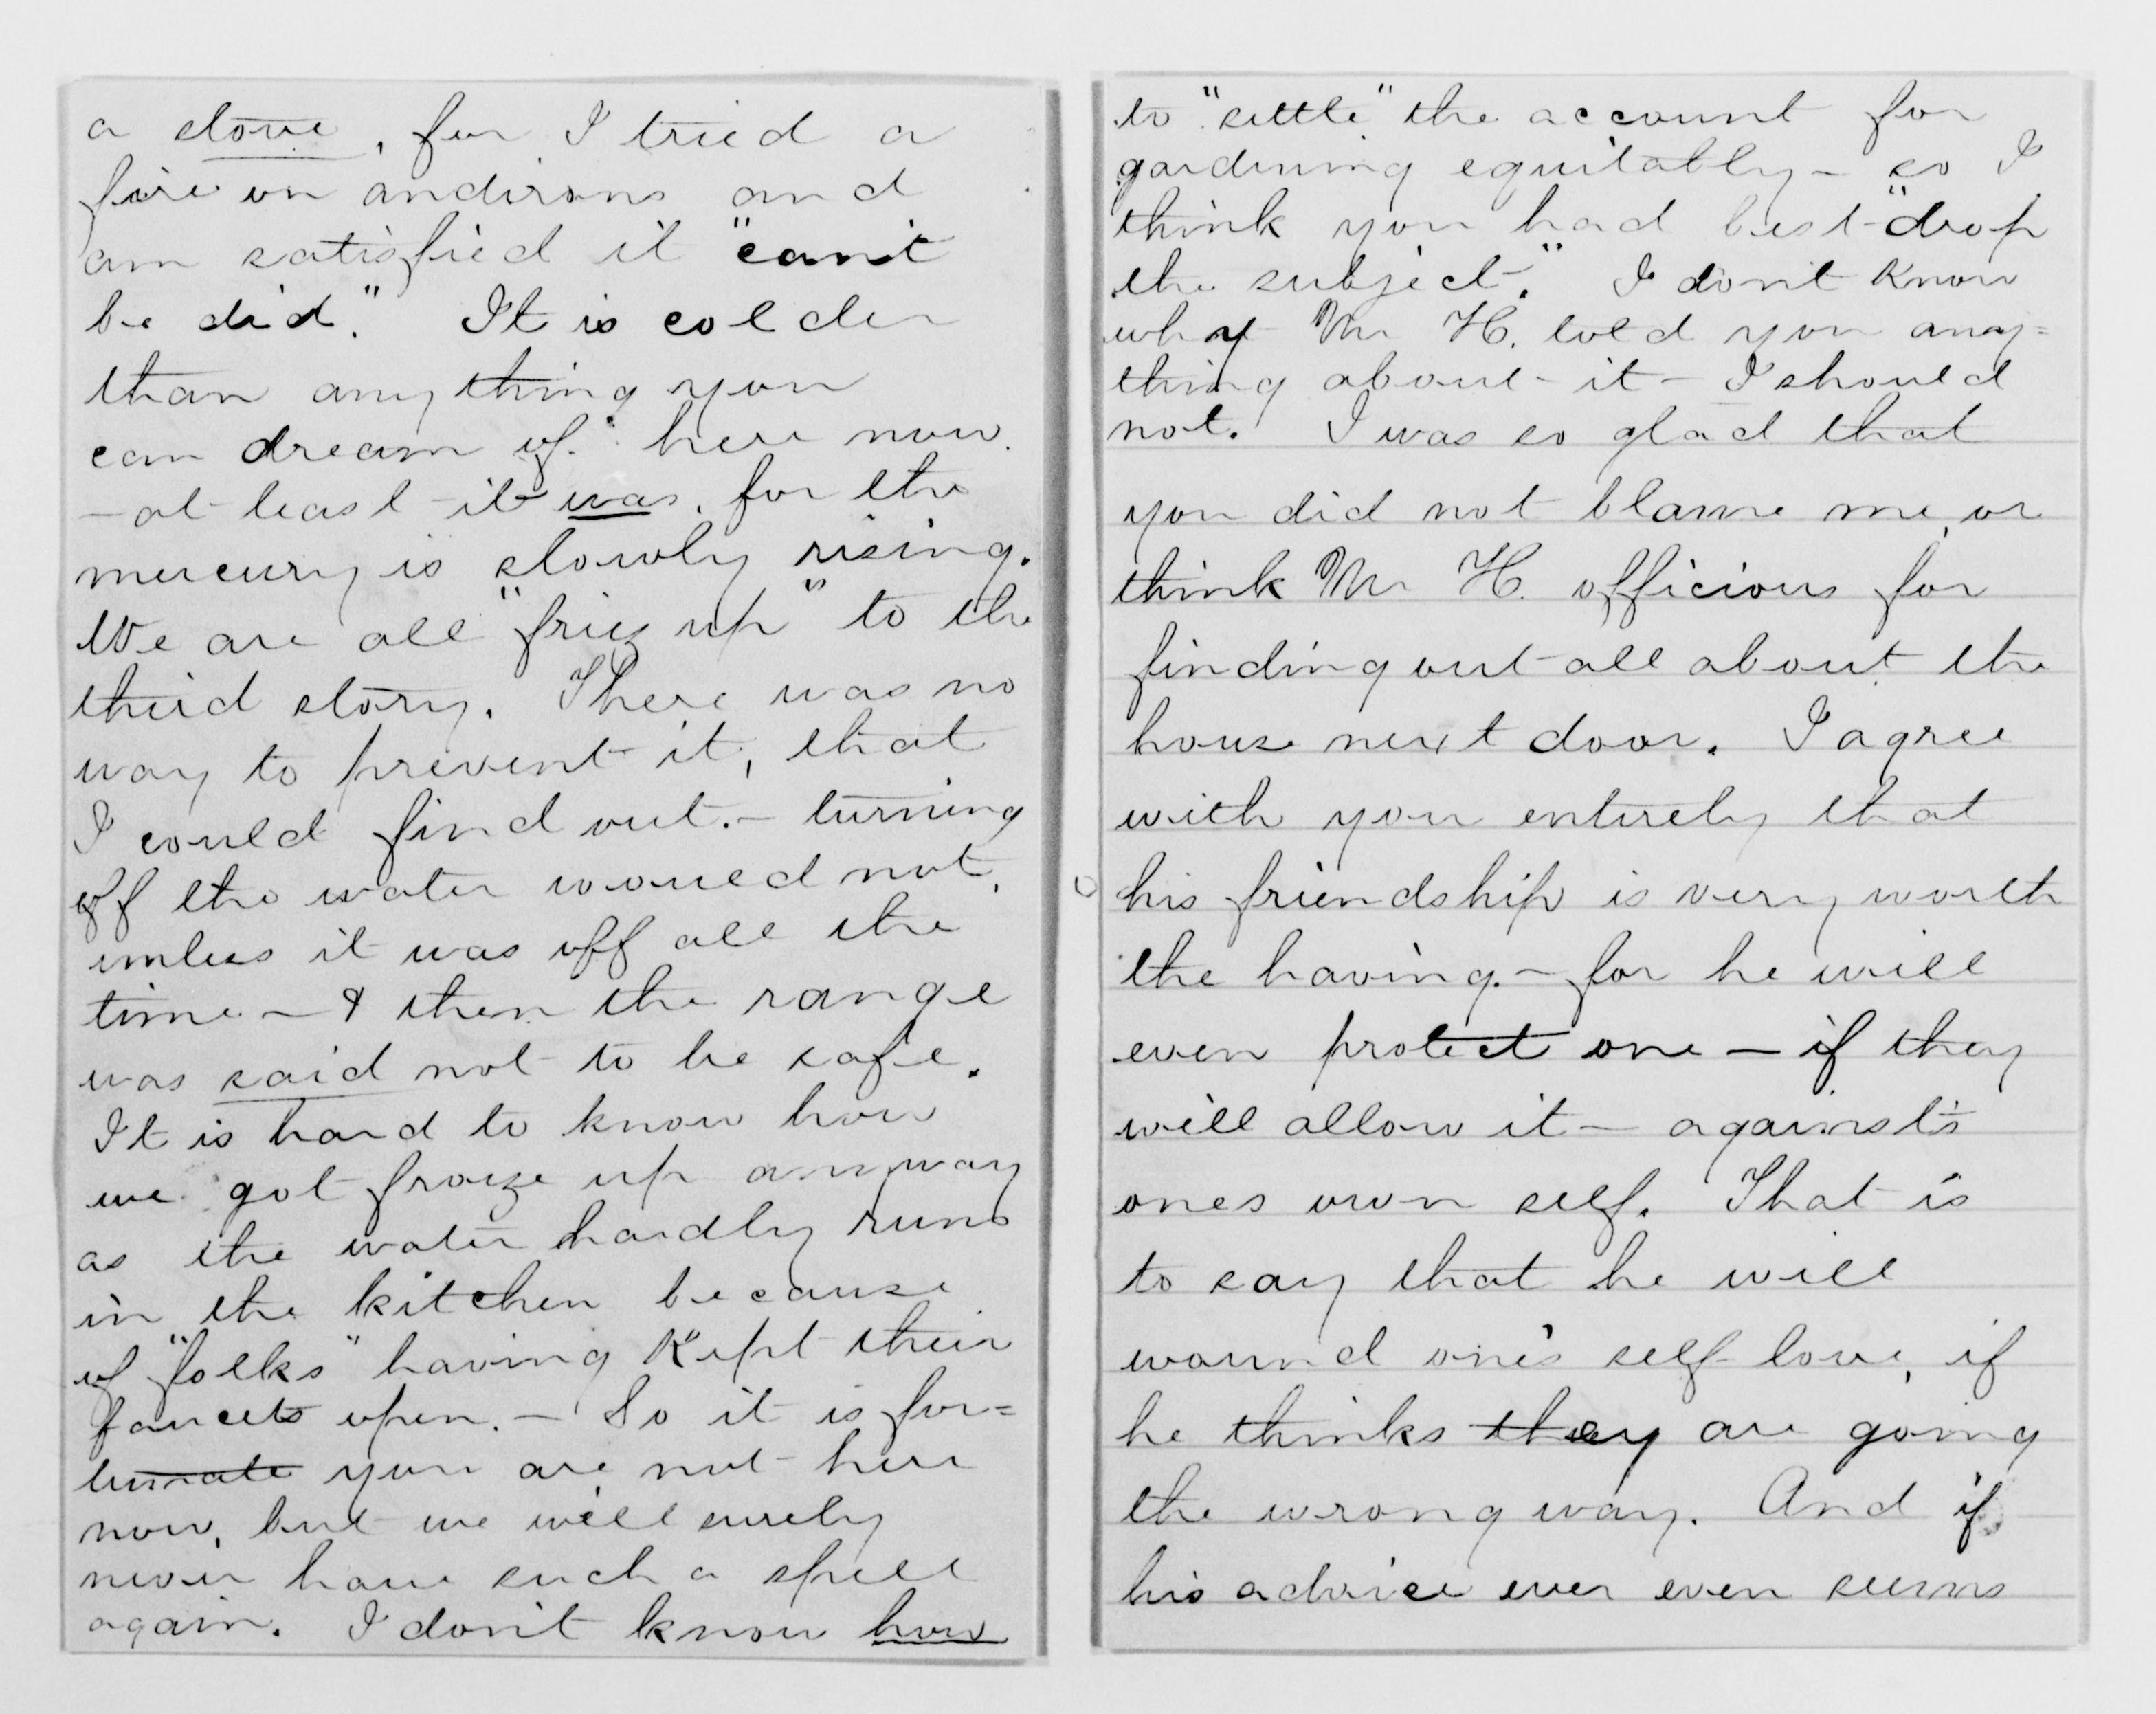 a stove, for I tried a
fire on andirons and
am satisfied it "can't
be did." It is colder
than anything you
can dream of here now.
—at least it was, for the
mercury is slowly rising.
We are all "friz up" to the
third story. There was no
way to prevent it, that
I could find out.— turning
off the water would not,
unless it was off all the
time — & then the range
was said not to be safe.
It is hard to know how
we got froze up anyway
as the water hardly runs
in the kitchen because
of "folks" having kept their
faucets open. — So it is for=
tunate you are not here
now, but we will surely
never have such a spell
again. I don't know how
to "settle" the account for
gardening equitably — so I
think you had best "drop
the subject." I don't know
why Mr H. told you any=
thing about it — I should
not. I was so glad that
you did not blame me, or
think Mr H. officious for
finding out all about the
house next door. I agree
with you entirely that
his friendship is very worth
the having. — for he will
even protect one — if they
will allow it — against
ones own self. That is
to say that he will
wound one's self-love, if
he thinks they are going
the wrong way. And if
his advice ever even seems